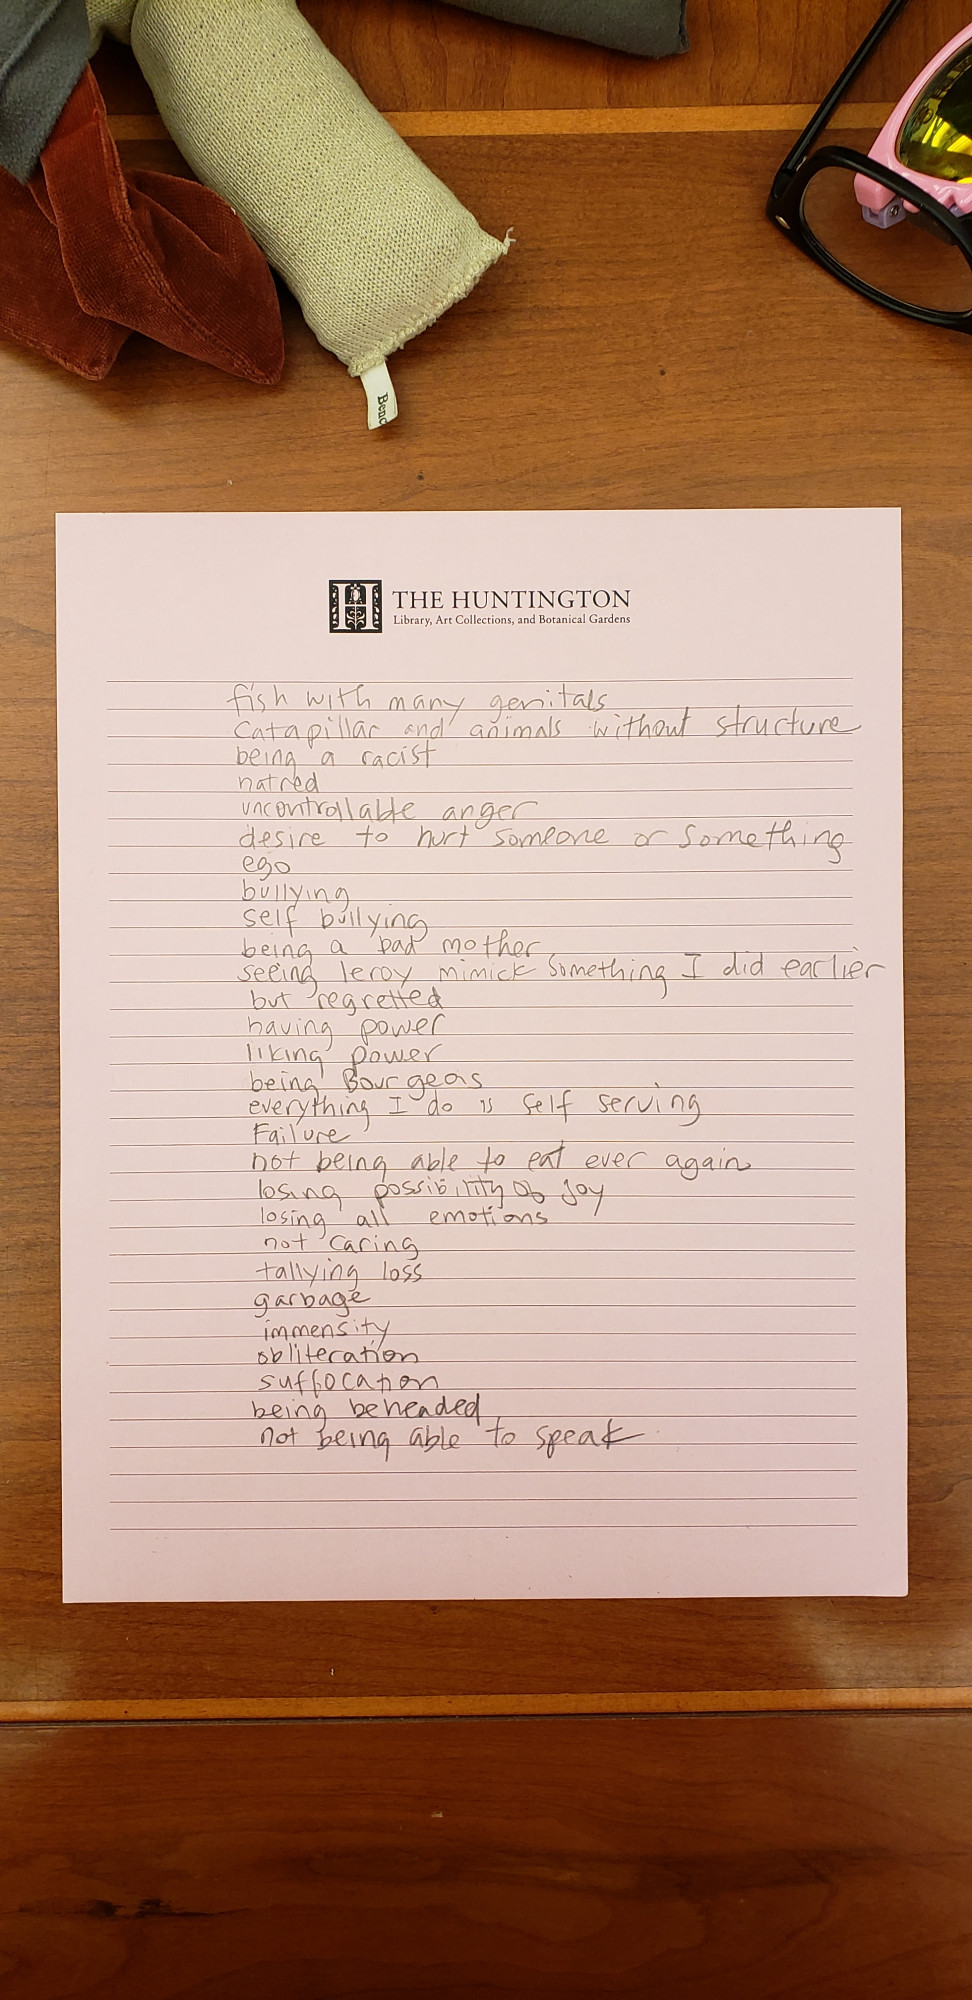 Benc
THE HUNTINGTON
Library, Art Collections, and Botanical Gardens
fish with many genitals
catapillar and animals without structure
being a racist
hatred
uncontrollable anger
desire to hurt someone or something
ego
bullying
self bullying
being a bad mother
seeing leroy mimick something I did earlier
but regretted
having power
liking power
being Bourgeois
everything I do is self serving
Failure
not being able to eat ever again
losing possibility of joy
losing all emotions
not caring
tallying loss
garbage
immensity
obliteration
suffocation
being beheaded
not being able to speak